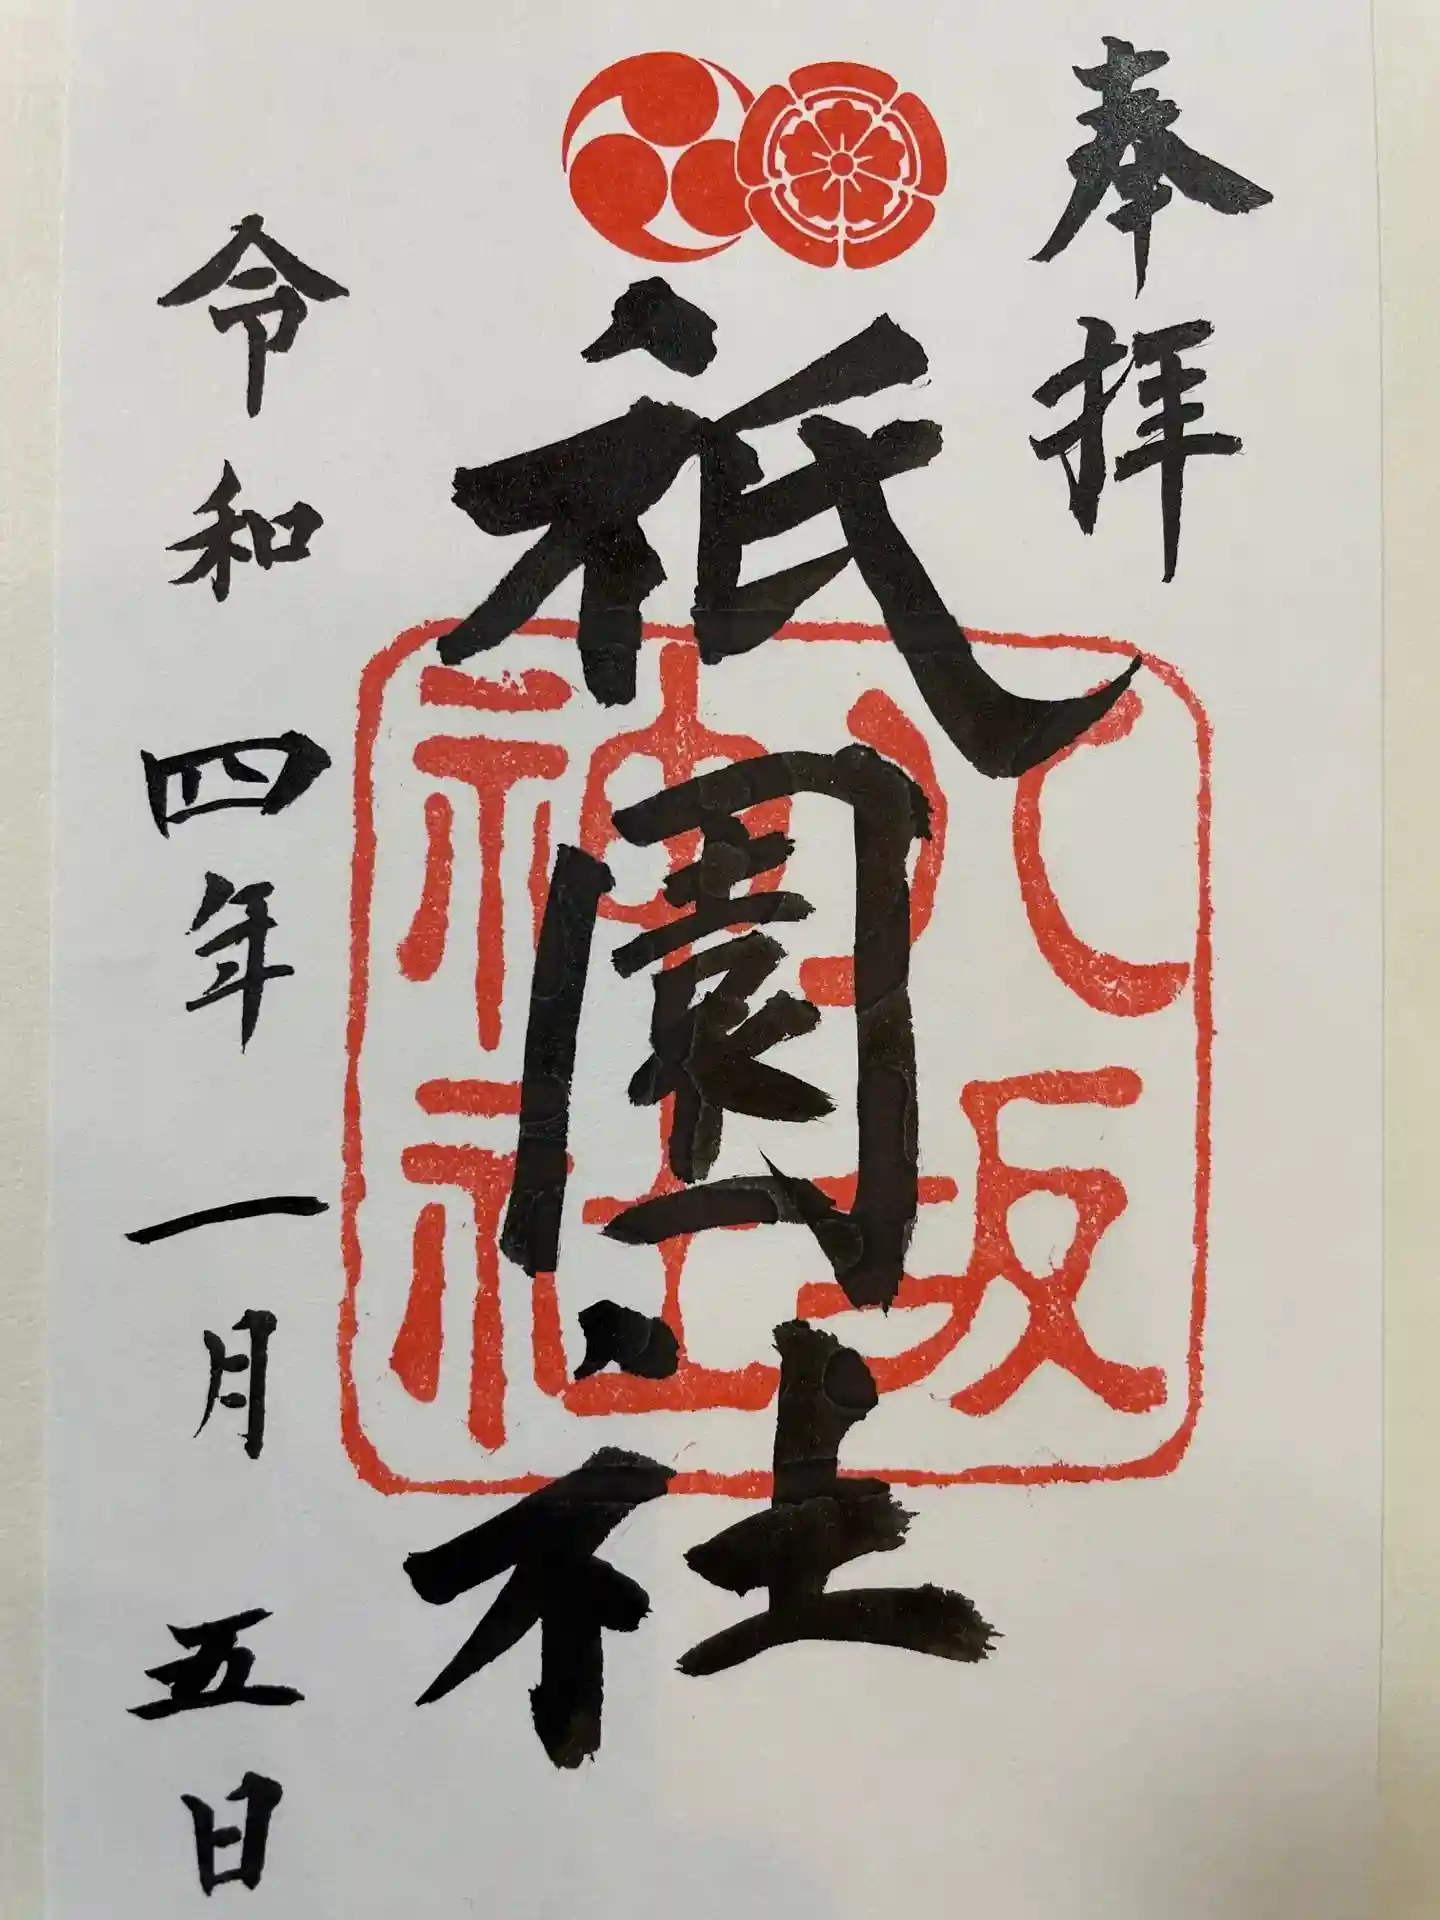 奉拝
祇園社
八坂
神社
令和四年一月五日